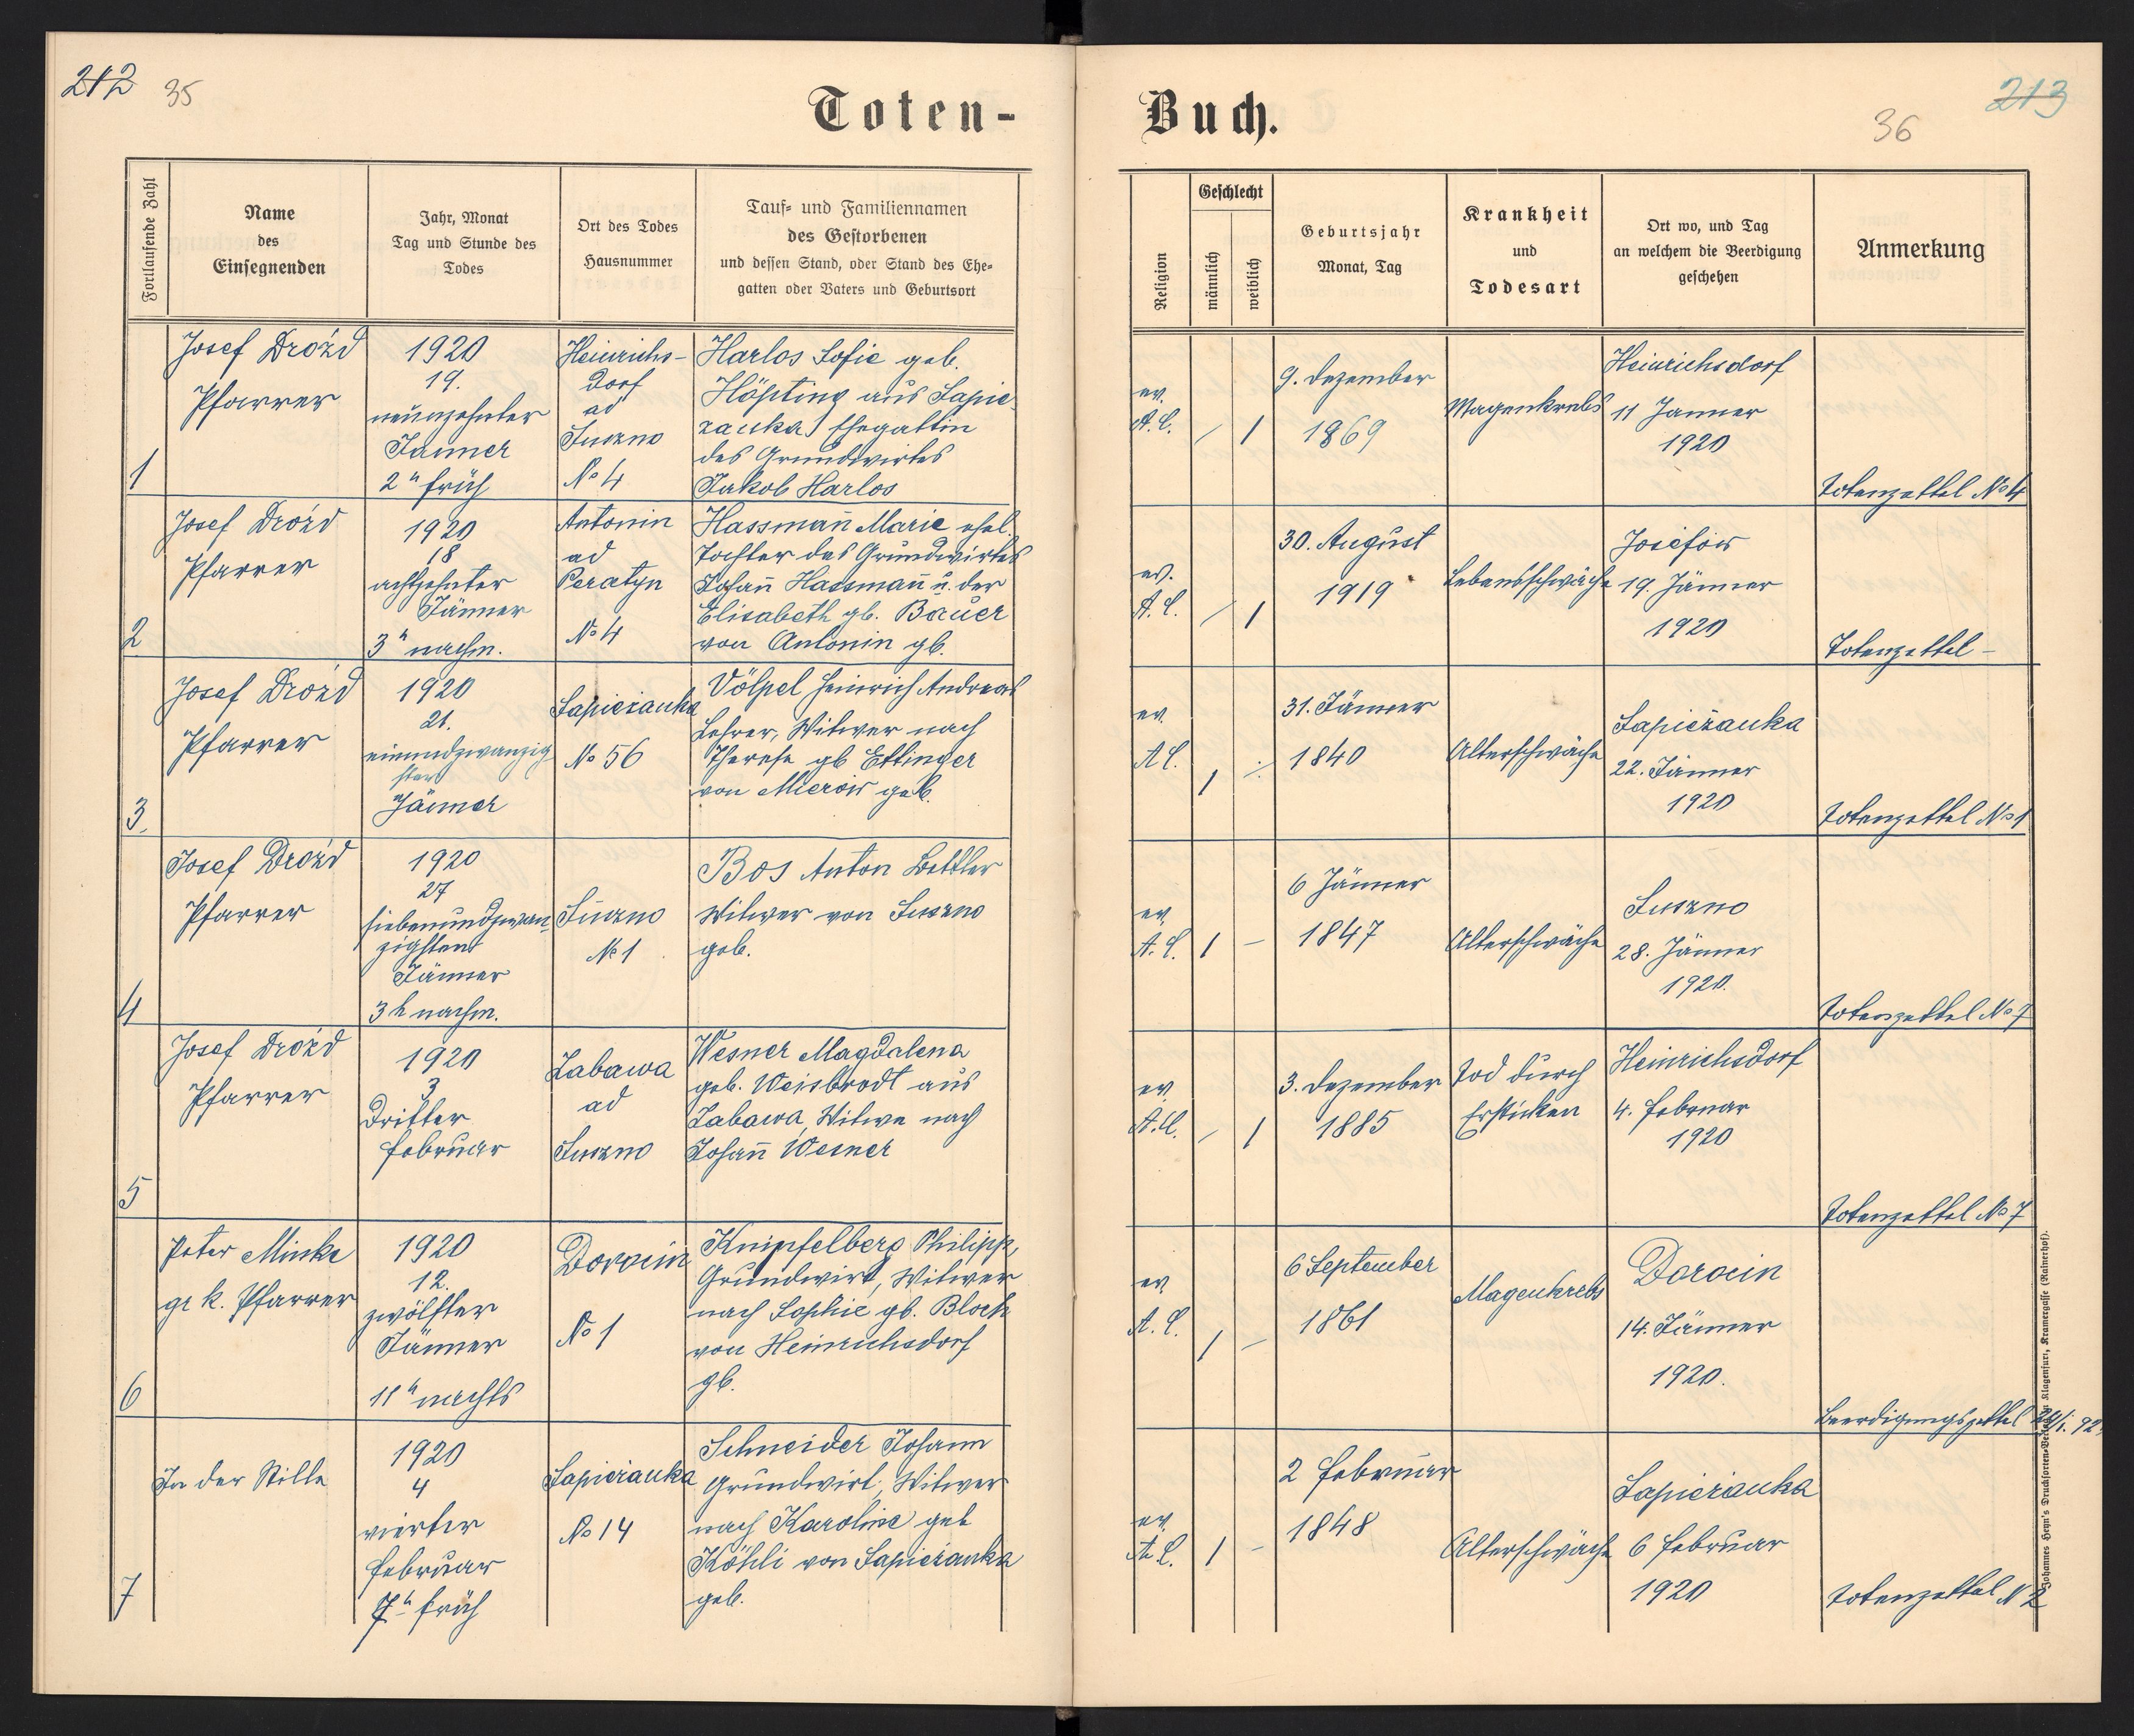 212 35
Toten-
Fortlaufende Zahl
Name
des
Einsegnenden
Jahr, Monat
Tag und Stunde des
Todes
Ort des Todes
Hausnummer
Tauf- und Familiennamen
des Gestorbenen
und dessen Stand, oder Stand des Ehe-
gatten oder Vaters und Geburtsort
1
Josef Drożd
Pfarrer
1920
19.
neunzehnter
Jänner
2h früh
Heinrichs-
dorf
ad
Suszno
No 4
Harlos Sofie geb.
Höpting aus Sapie-
zanka, Ehegattin
des Grundwirtes
Jakob Harlos
2
Josef Drożd
Pfarrer
1920
18
achtzehnter
Jänner
3h nachm.
Antonin
ad
Peratyn
No 4
Hassmann̄ Marie ehel.
Tochter des Grundwirtes
Johan̄ Hassman̄ u. der
Elisabeth gb. Bauer
von Antonin gb.
3.
Josef Drożd
Pfarrer
1920
21.
einundzwanzig-
ster
Jänner
Sapieżanka
No 56
Völpel Heinrich Andreas
Lehrer, Witwer nach
Therese gb Ettinger
von Mierow geb.
4
Josef Drożd
Pfarrer
1920
27
siebenundzwan-
zigsten
Jänner
3 h nachm.
Suszno
No 1
Bos Anton Bettler
Witwer von Suszno
geb.
5
Josef Drożd
Pfarrer
1920
3
Dritter
Februar
Zabawa
ad
Suszno
Wesner Magdalena
geb. Weisbrodt aus
Zabawa, Witwe nach
Johan̄ Wesner
6
Peter Minke
gr k. Pfarrer
1920
12.
zwölfter
Jänner
11h nachts
Dorocin
No 1
Knipfelberg Philipp,
Grundwirt, Witwer
nach Sophie gb. Bloch
von Heinrichsdorf
gb.
7
In der Stille
1920
4
vierter
Februar
7h früh
Sapieżanka
No 14
Schneider Johann
Grundwirt, Witwer
nach Karoline geb
Köhli von Sapieżanka
geb.
213
36
Buch.
Religion
Geschlecht
männlich
weiblich
Geburtsjahr
Monat, Tag
Krankheit
und
Todesart
Ort wo, und Tag
an welchem die Beerdigung
geschehen
Anmerkung
ev.
A.C.
/ 1
9. Dezember
1869
Magenkrebs
Heinrichsdorf
11 Janner
1920
Totenzettel No 4
ev.
A.C.
/ 1
30. August
1919
Lebensschwäche
Josefow
19. Jänner
1920
Totenzettel –
ev.
A C.
1 ÷
31. Jänner
1840
Altersschwäche
Sapieżanka
22. Jänner
1920
Totenzettel No 1
ev.
A. C.
1 –
6 Jänner
1847
Altersschwäche
Suszno
28. Jänner
1920.
Totenzettel No 7
ev.
A.C.
/ 1
3. Dezember
1885
Tod durch
Ersticken
Heinrichsdorf
4. Februar
1920
Totenzettel No 7
ev.
A. C.
1 –
6 September
1861
Magenkrebs
Dorocin
14. Jänner
1920.
Beerdigungszettel
ev.
A C.
1 -
2 Februar
1848
Altersschwäche
Sapieżanka
6 Februar
1920
Totenzettel N 2